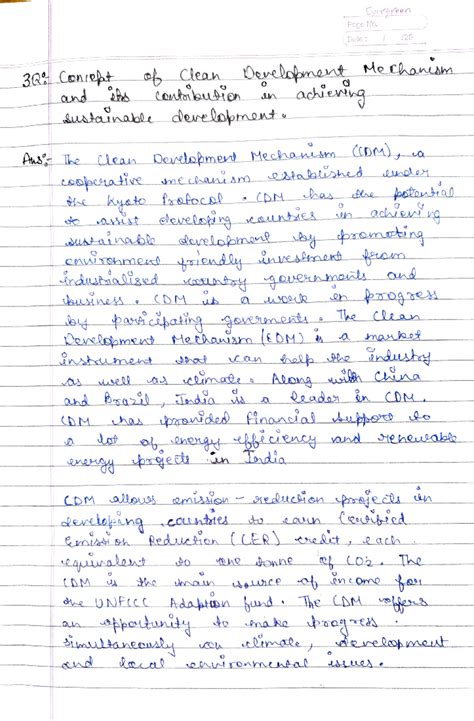 Evergreen
Page No.
Date: / /20
3Q:- Concept of Clean Development Mechanism
and its contribution in achieving
sustainable development.
Ans:- The Clean Development Mechanism (CDM), a
cooperative mechanism established under
the Kyoto Protocol. CDM has the potential
to assist developing countries in achieving
sustainable development by promoting
environment friendly investment from
industrialised country governments and
business. CDM is a work in progress
by participating goverments. The Clean
Development Mechanism (CDM) is a market
instrument that can help the industry
as well as climate. Along with China
and Brazil, India is a leader in CDM.
CDM has provided Financial support to
a lot of energy efficiency and renewable
energy projects in India
CDM allows emission-reduction projects in
developing countries to earn Certified
Emission Reduction (CER) credit, each
equivalent to one tonne of CO2. The
CDM is the main source of income for
the UNFCCC Adaption fund. The CDM offers
an opportunity to make progress
simultaneously on climate, development
and local environmental issues.